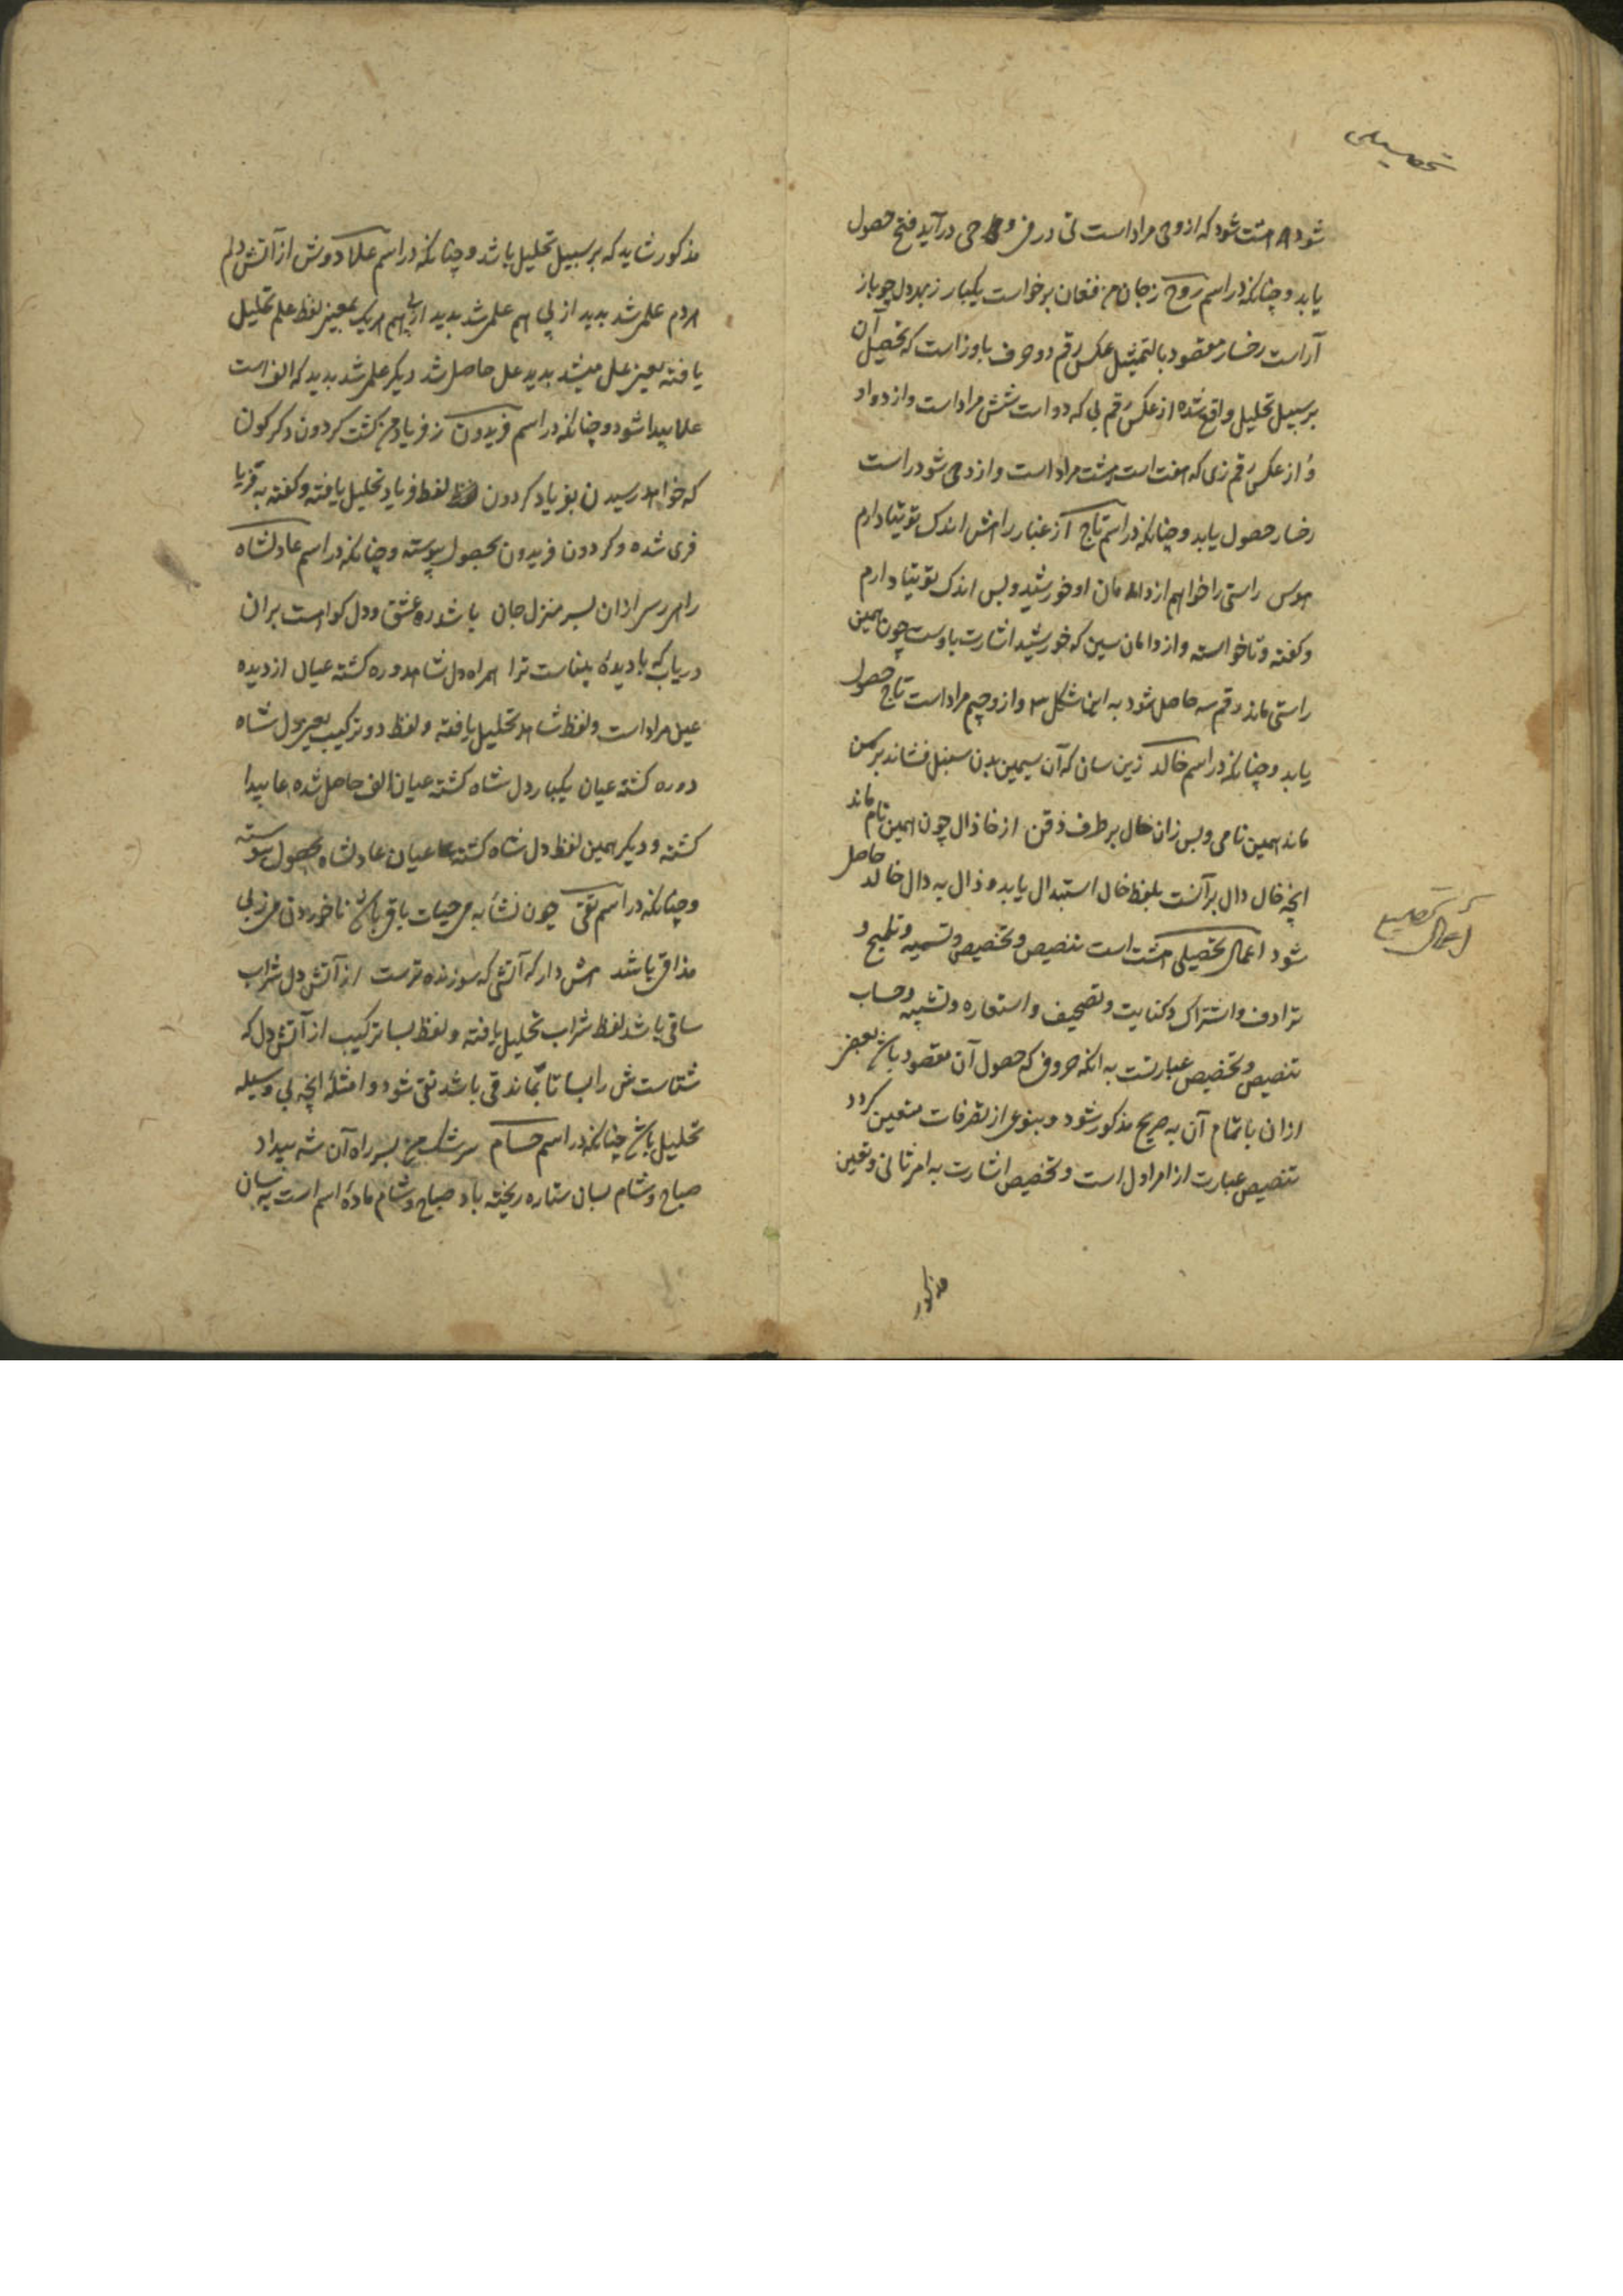 تحصیلی
شود ۸ هشت شود که ازو حی مراد است تی در فی و حی درآید فتح حصول
یابد و چنانکه در اسم روح ز جان من فغان برخواست یکبار ز بهر دل چو باز
آراست رخسار مقصود بالتمثیل عکس رقم دو حرف باوز است که تحصیل آن
بر سبیل تحلیل واقع شده از عکس رقم بی که دو است شش مراد است و از دو او
و از عکس رقم زی که هفت است هشت مراد است و ازو حی شود راست
رخسار حصول یابد و چنانکه در اسم تاج از غبار راهش اندک توتیا دارم
هوس راستی را خواهم از دامان او خورشید و بس اندک توتیا دارم
و گفته و تا خواسته و از دامان سین که خورشید اشارت باوست چون همین
راستی ماند رقم سه حاصل شود به این شکل ۳ و ازو جیم مراد است تاج حصول
یابد و چنانکه در اسم خالد زین سان که آن سیمین بدن سنبل فشاند بر سمن
ماند همین نامی و بس زان خال بر طرف ذقن از خا ذال چون همین نام ماند
انچه خال دال بر آنست بلفظ خال استبدال یابد و ذال به دال خالد حاصل
شود اعمال تحصیلی هشت است تنصیص و تخصیص و تسمیه و تلمیح و
ترادف و اشتراک و کنایت و تصحیف و استعاره و تشبیه و حساب
تنصیص و تخصیص عبارتست به انکه حروفی که حصول آن مقصود باشد بعضی
ازان یا تمام آن به صریح مذکور شود و بنوعی از تصرفات متعین گردد
تنصیص عبارت از امر اول است و تخصیص اشارت به امر ثانی و تعین
اعمال تحصیلی
مذکور
مذکور شاید که بر سبیل تحلیل باشد و چنانکه در اسم علا دوش از آتش دلم
هر دم علم شد پدید از پی هم علم شد پدید از پی هم هر یک بمعنی لفظ علم تحلیل
یافته یعنی عل میشد پدید عل حاصل شد دیگر علم شد پدید که الف است
علا پیدا شود و چنانکه در اسم فریدون ز فریاد من گشت گردون دگرگون
که خواهد رسیدن بفریاد گردون لفظ فریاد تحلیل یافته و گفته به فریا
فری شده و گردون فریدون بحصول پیوسته و چنانکه در اسم عادلشاه
راهبر سر ازان بسر منزل جان باشد ره عشق و دل گواهست بران
دریاب که با دیده بیناست ترا همراه دل شاهد و ره گشته عیان از دیده
عین مراد است و لفظ شاهد تحلیل یافته و لفظ دو ترکیب یعنی دل شاه
دوره گشته عیان یکبار دل شاه گشته عیان الف حاصل شده عا پیدا
گشته و دیگر همین لفظ دل شاه گشته عیان عادلشاه بحصول پیوسته
و چنانکه در اسم تقی چون نشأ به می حیات باقی باشد ناخوردن می ز بی
مذاقی باشد هش دار که آتشی که سوزنده ترست از آتش دل شراب
ساقی باشد لفظ شراب تحلیل یافته و لفظ بسا ترکیب از آتش دل که
شتاست ش را بسا تا بماند قی باشد تقی شود و امثله انچه بی وسیله
تحلیل باشد چنانکه در اسم حسام سرشک من بسر راه آن شه بیداد
صباح و شام بسان ستاره ریخته باد صباح و شام ماده اسم است به سان